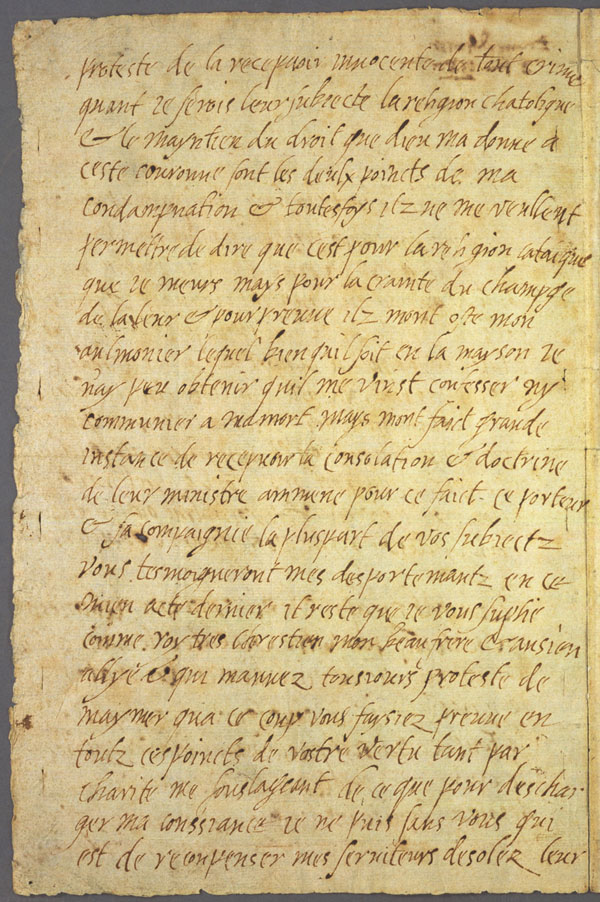 proteste de la recepvoir innocente de tout crime
quant je serois leur subjecte la religion chatolique
& le mayntien du droit que dieu ma donne a
ceste couronne sont les deulx points de ma
condampnation & toutesfoys ilz ne me veullent
permettre de dire que cest pour la religion catolique
que je meurs mays pour la crainte du champge
de la leur & pour preuve ilz mont oste mon
aulmonier lequel bien quil soit en la mayson je
nay peu obtenir quil me vinst confesser ny
communier a ma mort mays mont faict grande
instance de recepvoir la consolation & doctrine
de leur ministre ammene pour ce faict ce porteur
& sa compaignie la pluspart de vos subjectz
vous tesmoigneront mes desportemantz en ce
mien acte dernier il reste que je vous suplie
comme roy tres chrestien mon beaufrere & ansien
allye & qui mauvez tousjours proteste de
maymer qua ce coup vous faysiez preuve en
toutz ces points de vostre vertu tant par
charite me souslageant de ce que pour deschar
ger ma conssiance je ne puis sans vous qui
est de recompenser mes serviteurs desolez leur